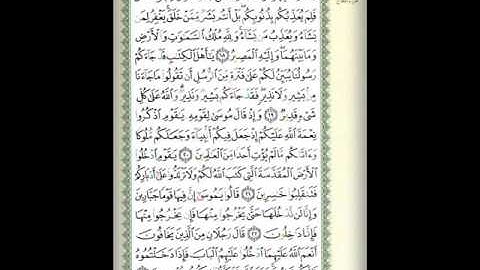 فَلِمَ يُعَذِّبُكُم بِذُنُوبِكُم بَلْ أَنتُم بَشَرٌ مِّمَّنْ خَلَقَ يَغْفِرُ لِمَن
يَشَاءُ وَيُعَذِّبُ مَن يَشَاءُ وَلِلَّهِ مُلْكُ السَّمَٰوَٰتِ وَالْأَرْضِ
وَمَا بَيْنَهُمَا وَإِلَيْهِ الْمَصِيرُ ١٨ يَٰأَهْلَ الْكِتَٰبِ قَدْ جَاءَكُمْ
رَسُولُنَا يُبَيِّنُ لَكُمْ عَلَىٰ فَتْرَةٍ مِّنَ الرُّسُلِ أَن تَقُولُوا مَا جَاءَنَا
مِن بَشِيرٍ وَلَا نَذِيرٍ فَقَدْ جَاءَكُم بَشِيرٌ وَنَذِيرٌ وَاللَّهُ عَلَىٰ كُلِّ
شَيْءٍ قَدِيرٌ ١٩ وَإِذْ قَالَ مُوسَىٰ لِقَوْمِهِ يَٰقَوْمِ اذْكُرُوا
نِعْمَةَ اللَّهِ عَلَيْكُمْ إِذْ جَعَلَ فِيكُمْ أَنبِيَاءَ وَجَعَلَكُم مُّلُوكًا
وَءَاتَىٰكُم مَّا لَمْ يُؤْتِ أَحَدًا مِّنَ الْعَٰلَمِينَ ٢٠ يَٰقَوْمِ ادْخُلُوا
الْأَرْضَ الْمُقَدَّسَةَ الَّتِي كَتَبَ اللَّهُ لَكُمْ وَلَا تَرْتَدُّوا عَلَىٰ أَدْبَارِكُمْ
فَتَنقَلِبُوا خَٰسِرِينَ ٢١ قَالُوا يَٰمُوسَىٰ إِنَّ فِيهَا قَوْمًا جَبَّارِينَ
وَإِنَّا لَن نَّدْخُلَهَا حَتَّىٰ يَخْرُجُوا مِنْهَا فَإِن يَخْرُجُوا مِنْهَا
فَإِنَّا دَٰخِلُونَ ٢٢ قَالَ رَجُلَانِ مِنَ الَّذِينَ يَخَافُونَ
أَنْعَمَ اللَّهُ عَلَيْهِمَا ادْخُلُوا عَلَيْهِمُ الْبَابَ فَإِذَا دَخَلْتُمُوهُ